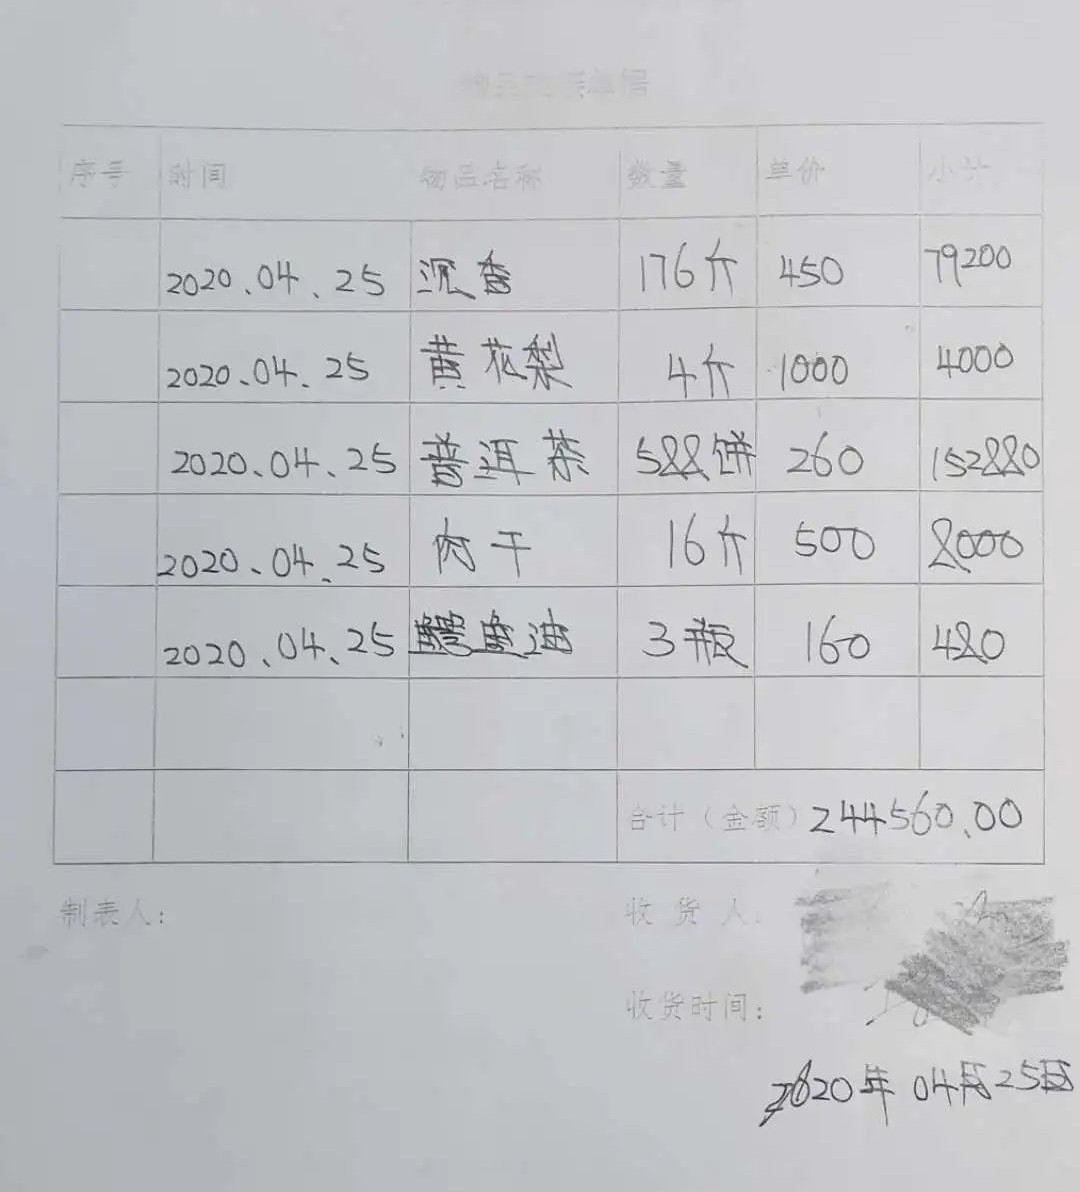 序号 时间 物品名称 数量 单价 小计
2020.04.25 沉香 176斤 450 79200
2020.04.25 黄花梨 4斤 1000 4000
2020.04.25 普洱茶 588饼 260 152880
2020.04.25 肉干 16斤 500 8000
2020.04.25 鳄鱼油 3瓶 160 480
合计（金额）244560.00
制表人： 收货人：
收货时间：
2020年04月25日